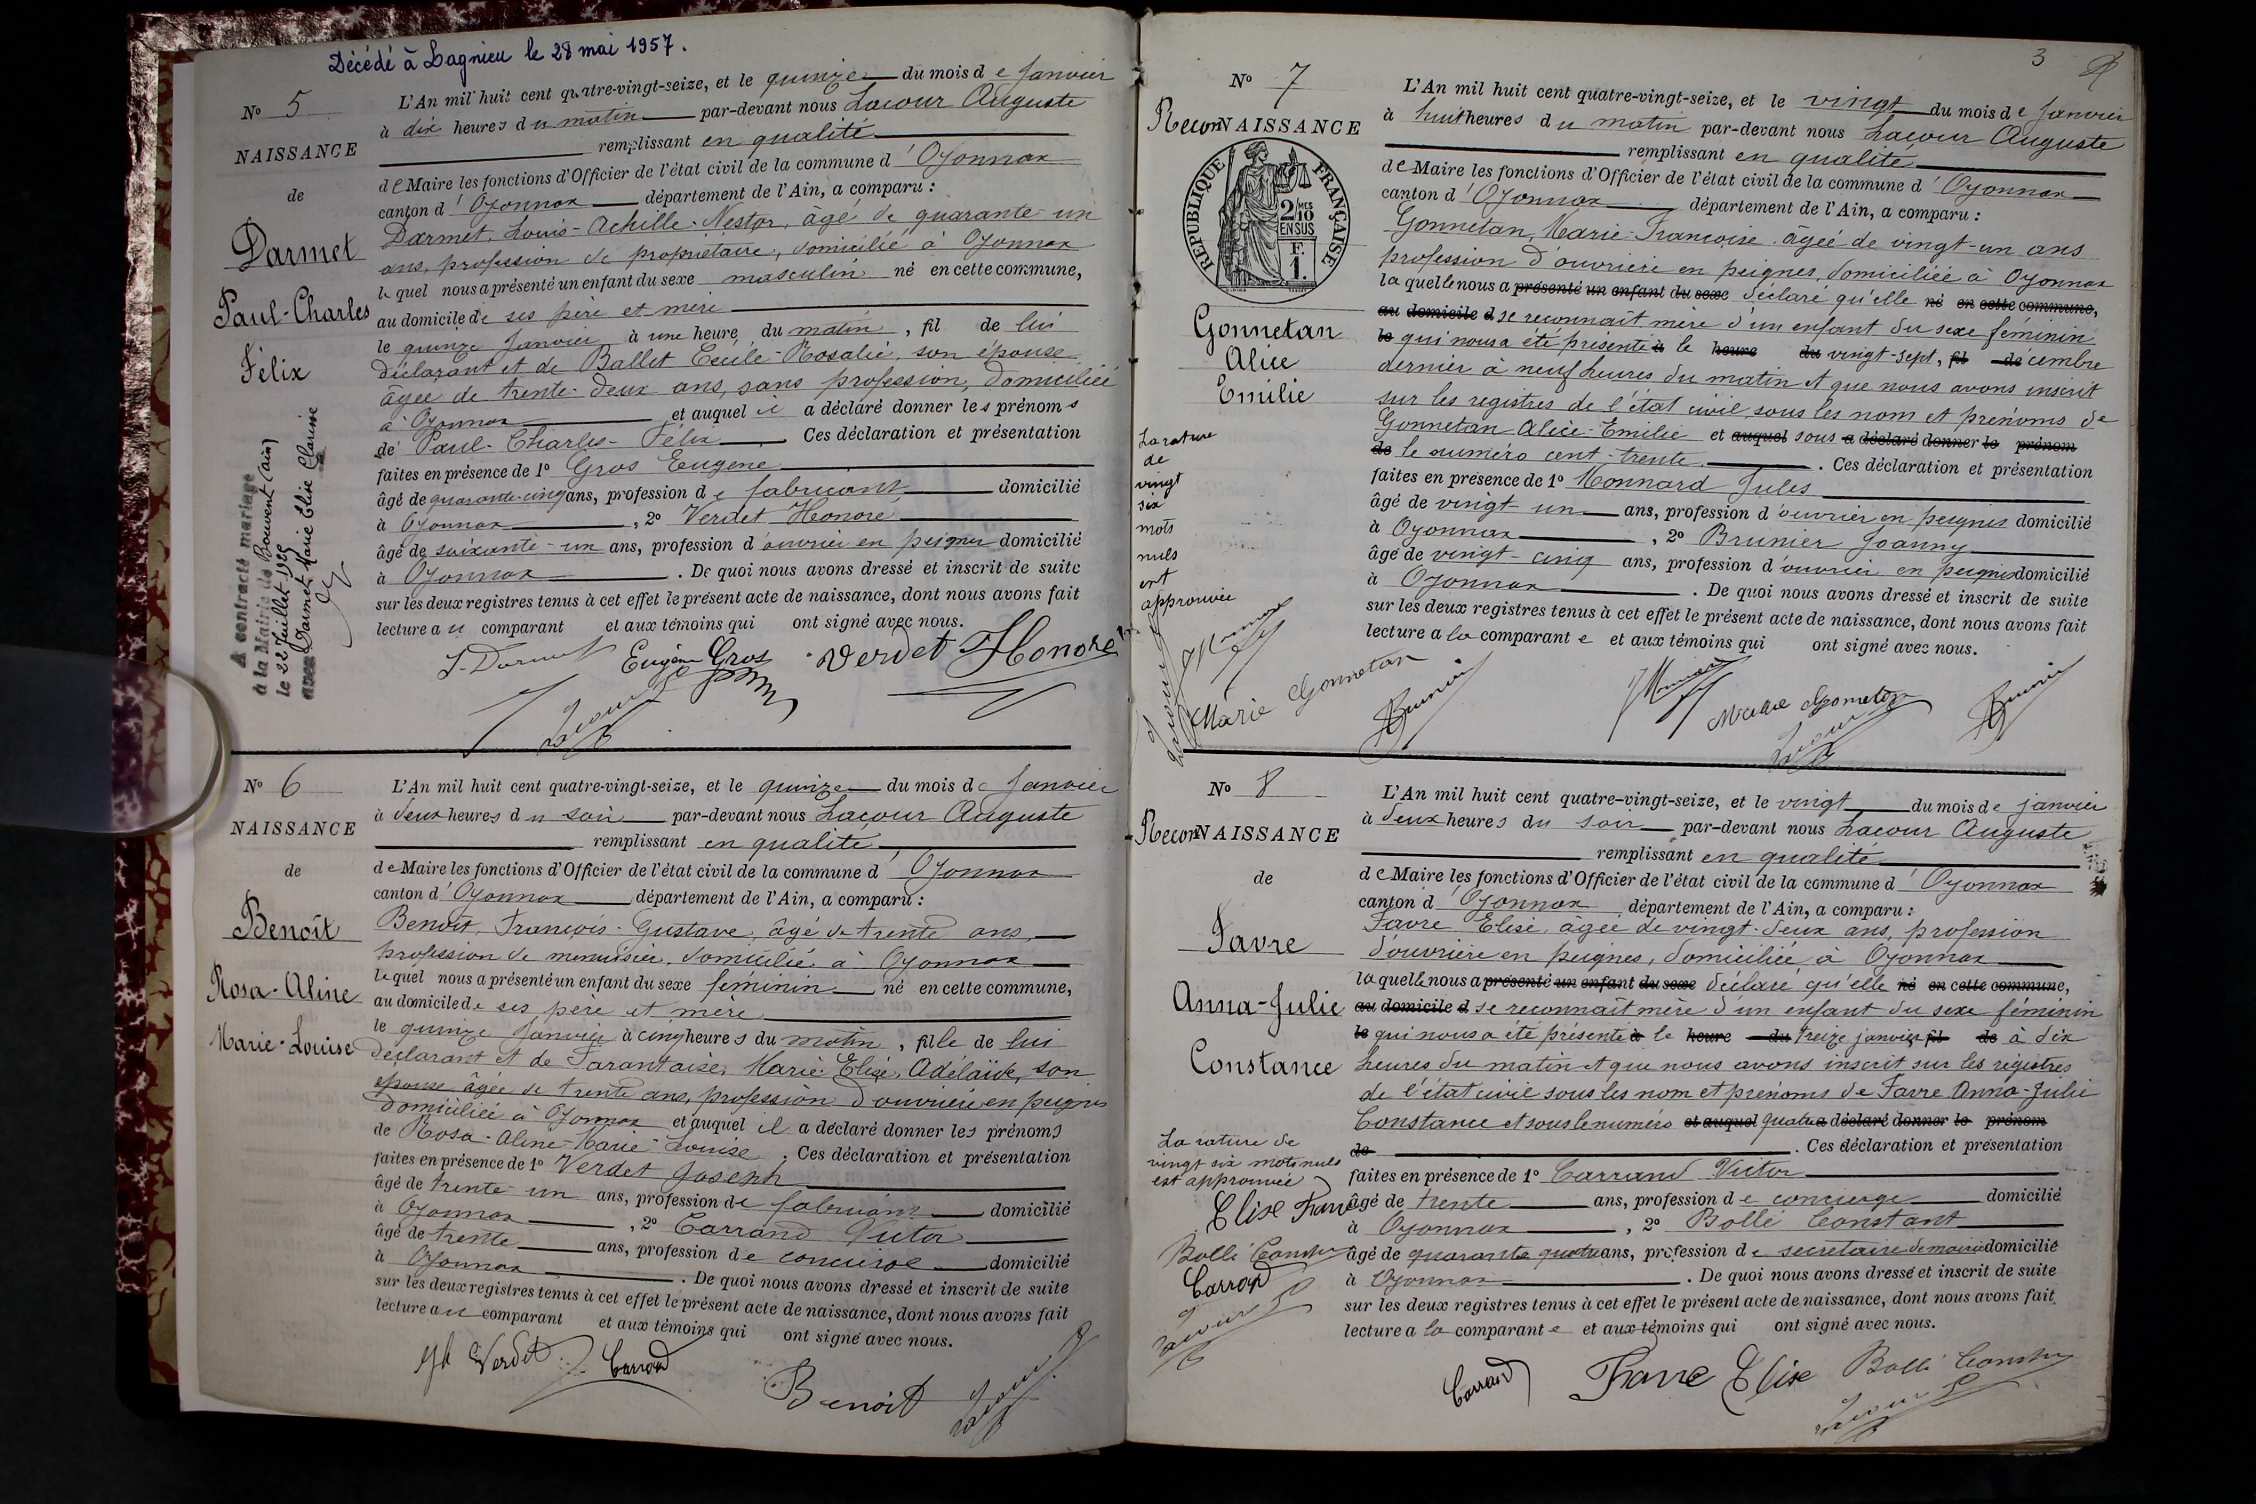 Décédé à Lagnieu le 28 mai 1957.
No 5
NAISSANCE
de
Darmet
Paul-Charles
Félix
A contracté mariage
à la Mairie de Bouvent (ain)
le 22 Juillet 19
avec Darmet Marie Elise Clarisse
L'An mil huit cent quatre-vingt-seize, et le quinze du mois de Janvier
à dix heures du matin par-devant nous Lacour Auguste
remplissant en qualité
de Maire les fonctions d'Officier de l'état civil de la commune d'Oyonnax
canton d'Oyonnax département de l'Ain, a comparu :
Darmet, Louis-Achille-Nestor, âgé de quarante-un
ans, profession de propriétaire, domicilié à Oyonnax
lequel nous a présenté un enfant du sexe masculin né en cette commune,
au domicile de ses père et mère
le quinze Janvier à une heure du matin, fil de lui
déclarant et de Ballet Cécile-Rosalie, son épouse
âgée de trente-deux ans, sans profession, domiciliée
à Oyonnax et auquel il a déclaré donner les prénoms
de Paul-Charles-Félix Ces déclaration et présentation
faites en présence de 1º Gros Eugène
âgé de quarante-cinq ans, profession de fabricant domicilié
à Oyonnax, 2º Verdet Honoré
âgé de soixante-un ans, profession d'ouvrier en peignes domicilié
à Oyonnax. De quoi nous avons dressé et inscrit de suite
sur les deux registres tenus à cet effet le présent acte de naissance, dont nous avons fait
lecture au comparant et aux témoins qui ont signé avec nous.
L. Darmet Eugène Gros Verdet Honoré
Lacour
No 6
NAISSANCE
de
Benoît
Rosa-Aline
Marie-Louise
L'An mil huit cent quatre-vingt-seize, et le quinze du mois de Janvier
à deux heures du soir par-devant nous Lacour Auguste
remplissant en qualité
de Maire les fonctions d'Officier de l'état civil de la commune d'Oyonnax
canton d'Oyonnax département de l'Ain, a comparu :
Benoît, François-Gustave, âgé de trente ans,
profession de menuisier, domicilié à Oyonnax
lequel nous a présenté un enfant du sexe féminin né en cette commune,
au domicile de ses père et mère
le quinze Janvier à cinq heures du matin, fille de lui
déclarant et de Tarantaise, Marie Elise, Adélaïde, son
épouse âgée de trente ans, profession d'ouvrière en peignes
domiciliée à Oyonnax et auquel il a déclaré donner les prénoms
de Rosa-Aline-Marie-Louise. Ces déclaration et présentation
faites en présence de 1º Verdet Joseph
âgé de trente-un ans, profession de fabricant domicilié
à Oyonnax, 2º Carrand Victor
âgé de trente ans, profession de concierge domicilié
à Oyonnax. De quoi nous avons dressé et inscrit de suite
sur les deux registres tenus à cet effet le présent acte de naissance, dont nous avons fait
lecture au comparant et aux témoins qui ont signé avec nous.
Jh Verdet Carrand
Benoît Lacour
3
No 7
ReconNAISSANCE
RÉPUBLIQUE FRANÇAISE
2/10 MES
EN SUS
F.
1.
Gonnetan
Alice
Emilie
La rature
de
vingt
six
mots
nuls
est
approuvée
Lacour
Marie Gonnetan
Brunier
L'An mil huit cent quatre-vingt-seize, et le vingt du mois de Janvier
à huit heures du matin par-devant nous Lacour Auguste
remplissant en qualité
de Maire les fonctions d'Officier de l'état civil de la commune d'Oyonnax
canton d'Oyonnax département de l'Ain, a comparu :
Gonnetan, Marie-Françoise âgée de vingt-un ans
profession d'ouvrière en peignes, domiciliée à Oyonnax
laquelle nous a présenté un enfant du sexe déclaré qu'elle né en cette commune,
au domicile d se reconnaît mère d'un enfant du sexe féminin
le qui nous a été présenté à le heure du vingt-sept, fil de décembre
dernier à neuf heures du matin et que nous avons inscrit
sur les registres de l'état civil sous les nom et prénoms de
Gonnetan Alice-Emilie et auquel sous a déclaré donner le prénom
de le numéro cent-trente. Ces déclaration et présentation
faites en présence de 1º Monnard Jules
âgé de vingt-un ans, profession d'ouvrier en peignes domicilié
à Oyonnax, 2º Brunier Joanny
âgé de vingt-cinq ans, profession d'ouvrier en peignes domicilié
à Oyonnax. De quoi nous avons dressé et inscrit de suite
sur les deux registres tenus à cet effet le présent acte de naissance, dont nous avons fait
lecture a la comparante et aux témoins qui ont signé avec nous.
Marie Gonnetan Brunier
Lacour
No 8
ReconNAISSANCE
de
Favre
Anna-Julie
Constance
La rature de
vingt six mots nuls
est approuvée
Elise Favre
Bollé Constant
Carrand
Lacour
L'An mil huit cent quatre-vingt-seize, et le vingt du mois de janvier
à deux heures du soir par-devant nous Lacour Auguste
remplissant en qualité
de Maire les fonctions d'Officier de l'état civil de la commune d'Oyonnax
canton d'Oyonnax département de l'Ain, a comparu :
Favre Elise, âgée de vingt-deux ans, profession
d'ouvrière en peignes, domiciliée à Oyonnax
laquelle nous a présenté un enfant du sexe déclaré qu'elle né en cette commune,
au domicile d se reconnaît mère d'un enfant du sexe féminin
le qui nous a été présenté à le heure du treize janvier fil de à dix
heures du matin et que nous avons inscrit sur les registres
de l'état civil sous les nom et prénoms de Favre Anna-Julie
Constance et sous le numéro et auquel quatre a déclaré donner le prénom
de. Ces déclaration et présentation
faites en présence de 1º Carrand Victor
âgé de trente ans, profession de concierge domicilié
à Oyonnax, 2º Bollé Constant
âgé de quarante quatre ans, profession de secrétaire de mairie domicilié
à Oyonnax. De quoi nous avons dressé et inscrit de suite
sur les deux registres tenus à cet effet le présent acte de naissance, dont nous avons fait
lecture a la comparante et aux témoins qui ont signé avec nous.
Carrand Favre Elise Bollé Constant
Lacour